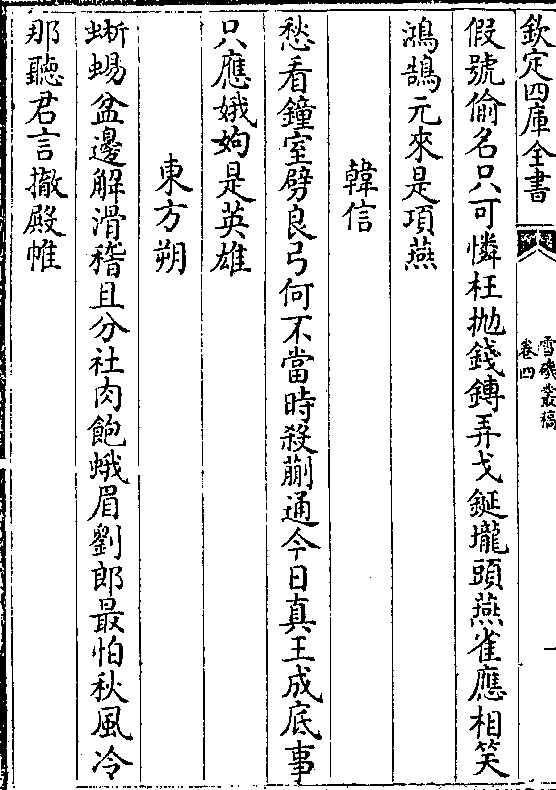 欽定四庫全書
雪磯叢稿
卷四
假號偷名只可憐枉拋錢鎛弄戈鋋壠頭燕雀應相笑
鴻鵠元來是項燕
韓信
愁看鐘室劈良弓何不當時殺蒯通今日真王成底事
只應娥姁是英雄
東方朔
蜥蜴盆邊解滑稽且分社肉飽蛾眉劉郎最怕秋風冷
那聽君言撤殿帷